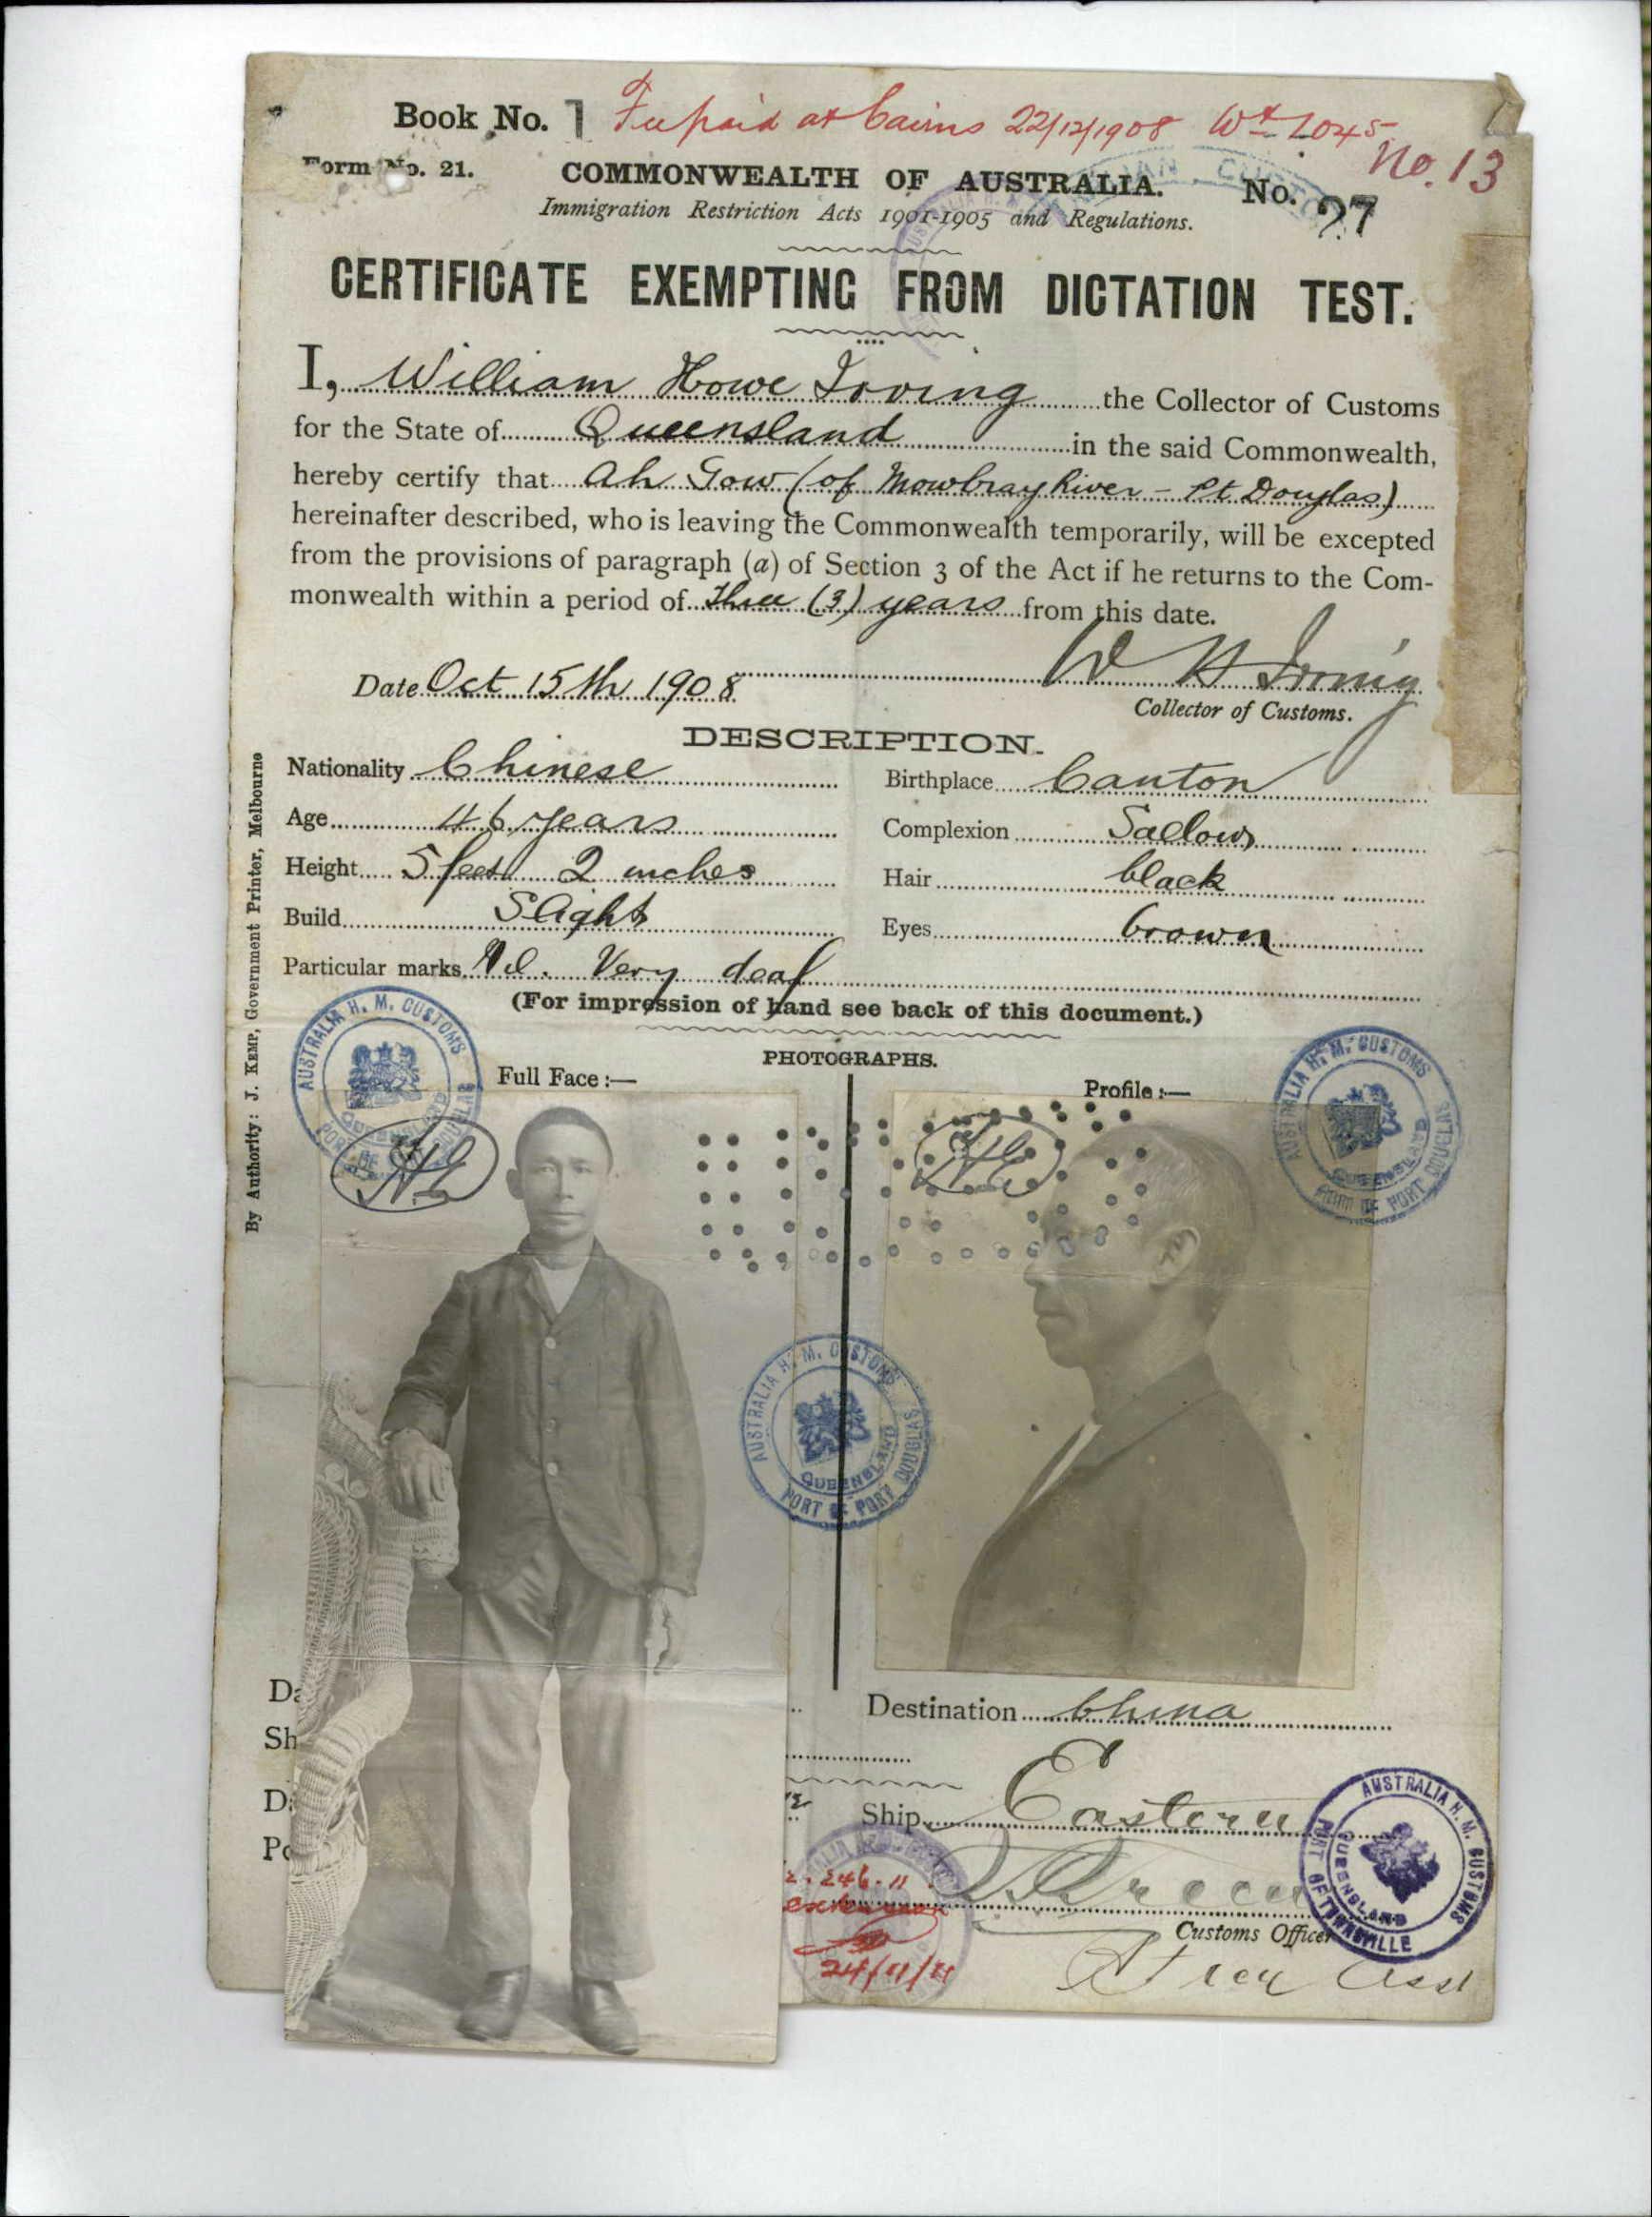 Book No. 1 Fee paid at Cairns 22/12/1908
No. 13
Form No. 21. COMMONWEALTH OF AUSTRALIA. No. 27
Immigration Restriction Acts 1901-1905 and Regulations.
CERTIFICATE EXEMPTING FROM DICTATION TEST.
I, William Howe Irving the Collector of Customs
for the State of Queensland in the said Commonwealth,
hereby certify that Ah Gow (of Mowbray River - Pt Douglas)
hereinafter described, who is leaving the Commonwealth temporarily, will be excepted
from the provisions of paragraph (a) of Section 3 of the Act if he returns to the Com-
monwealth within a period of Three (3) years from this date.
Date Oct 15th 1908 W H Irving
Collector of Customs.
DESCRIPTION.
Nationality Chinese Birthplace Canton
Age 46 years Complexion Sallow
Height 5 feet 2 inches Hair black
Build Slight Eyes brown
Particular marks Nil. Very deaf
(For impression of hand see back of this document.)
PHOTOGRAPHS.
Full Face :— Profile :—
By Authority: J. KEMP, Government Printer, Melbourne
AUSTRALIA H. M. CUSTOMS QUEENSLAND PORT OF PORT DOUGLAS
AUSTRALIA H. M. CUSTOMS QUEENSLAND PORT OF PORT DOUGLAS
AUSTRALIA H. M. CUSTOMS QUEENSLAND PORT OF PORT DOUGLAS
Destination China
Ship Eastern
24/11/11
Customs Officer
AUSTRALIA H. M. CUSTOMS QUEENSLAND PORT OF TOWNSVILLE